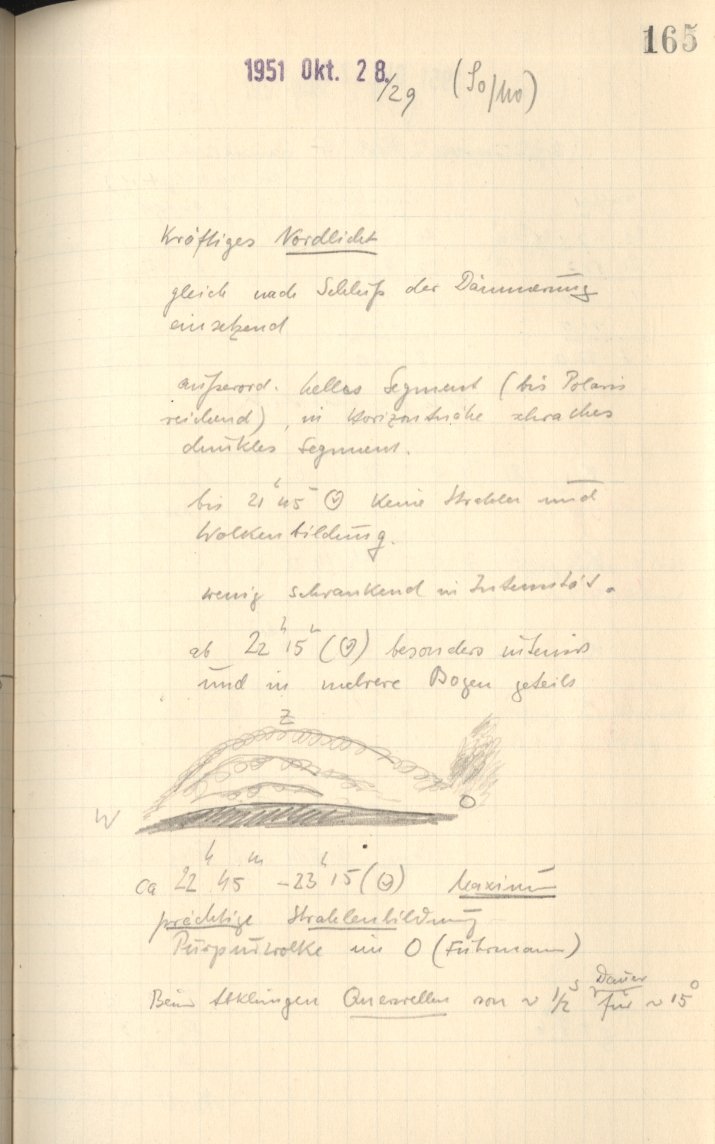 165
1951 Okt. 28./29 (So/Mo)
Kräftiges Nordlicht
gleich nach Schluß der Dämmerung
einsetzend
außerord. helles Segment (bis Polaris
reichend), in Horizontnähe schwaches
dunkles Segment.
bis 21h 45m keine Strahlen und
Wolkenbildung.
wenig schwankend in Intensität.
ab 22h 15m besonders intensiv
und in mehrere Bogen geteilt
Z
W O
ca 22h 45m - 23h 15 Maximum
prächtige Strahlenbildung
Purpurwolke im O (Fuhrmann)
Beim Abklingen Querwellen von ~ 1/2s Dauer für ~ 15°